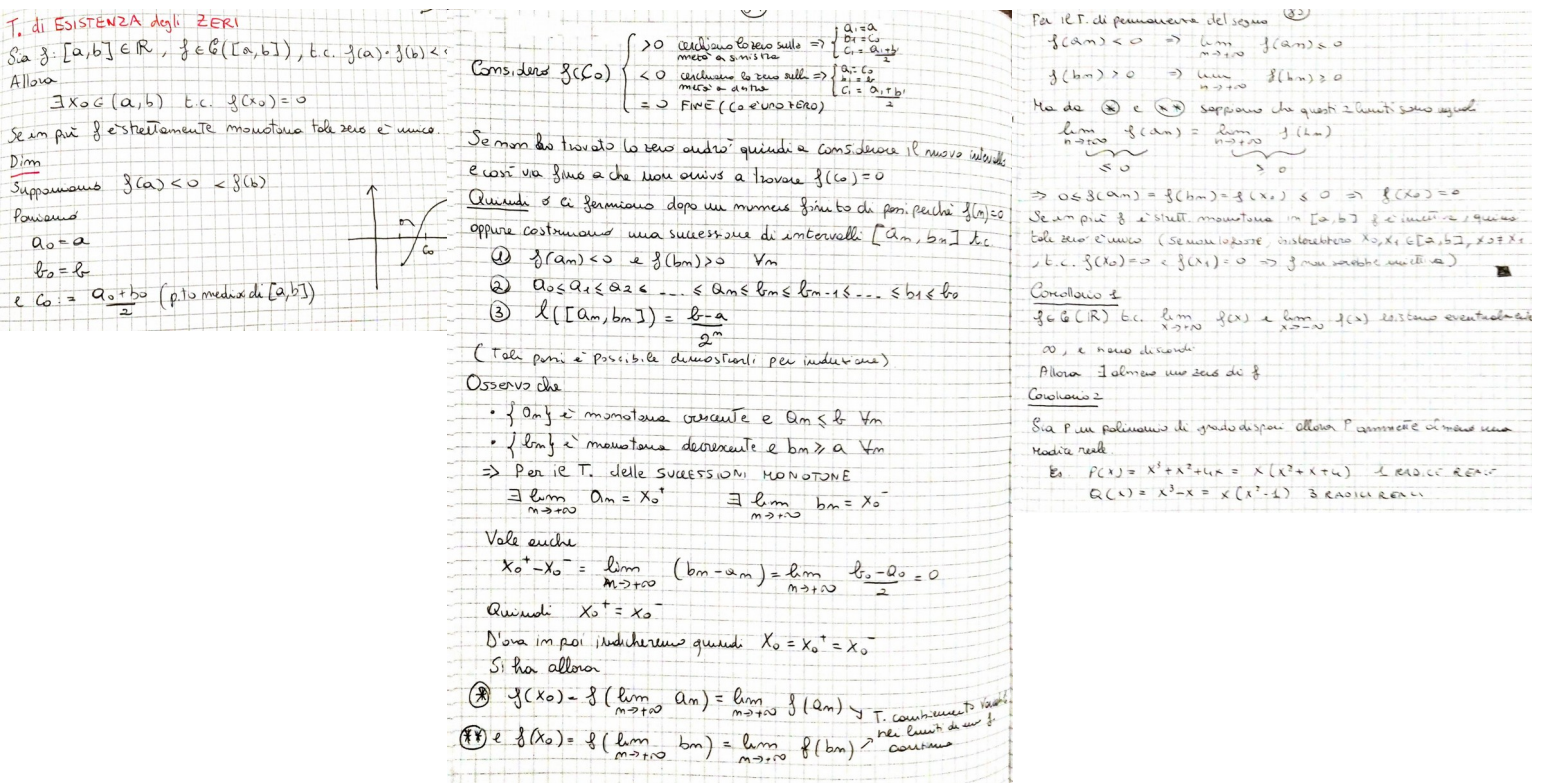 T. di ESISTENZA degli ZERI
Sia f: [a,b] ∈ ℝ, f ∈ C([a,b]), t.c. f(a)·f(b) <
Allora
∃ x₀ ∈ (a,b) t.c. f(x₀) = 0
Se in più f è strettamente monotona tale zero è unico.
Dim
Supponiamo f(a) < 0 < f(b)
Poniamo
a₀ = a
b₀ = b
e c₀ := (a₀+b₀)/2 (p.to medio di [a,b])
c₀
Considero f(c₀)
>0 cerchiamo lo zero sulla metà a sinistra => { a₁ = a, b₁ = c₀, c₁ = (a₁+b₁)/2
<0 cerchiamo lo zero sulla metà a destra => { a₁ = c₀, b₁ = b, c₁ = (a₁+b₁)/2
=0 FINE (c₀ è uno zero)
Se non ho trovato lo zero andrò quindi a considerare il nuovo intervallo
e così via fino a che non arrivo a trovare f(c₀) = 0
Quindi o ci fermiamo dopo un numero finito di passi perché f(n)=0
oppure costruiamo una successione di intervalli [an, bn] t.c.
① f(an) < 0 e f(bn) > 0 ∀n
② a₀ ≤ a₁ ≤ a₂ ≤ .... ≤ an ≤ bn ≤ bn-1 ≤ .... ≤ b₁ ≤ b₀
③ l([an, bn]) = (b-a)/2ⁿ
(Tali passi è possibile dimostrarli per induzione)
Osservo che
• {an} è monotona crescente e an ≤ b ∀n
• {bn} è monotona decrescente e bn ≥ a ∀n
=> Per il T. delle SUCCESSIONI MONOTONE
∃ lim n→+∞ an = x₀⁺ ∃ lim n→+∞ bn = x₀⁻
Vale anche
x₀⁺ - x₀⁻ = lim n→+∞ (bn - an) = lim n→+∞ (b₀-a₀)/2 = 0
Quindi x₀⁺ = x₀⁻
D'ora in poi indicheremo quindi x₀ = x₀⁺ = x₀⁻
Si ha allora
(*) f(x₀) = f(lim n→+∞ an) = lim n→+∞ f(an)
(**) e f(x₀) = f(lim n→+∞ bn) = lim n→+∞ f(bn)
T. cambiamento
nei limiti di
continue
Per il T. di permanenza del segno
f(an) < 0 => lim n→+∞ f(an) ≤ 0
f(bn) > 0 => lim n→+∞ f(bn) ≥ 0
Ma da (*) e (**) sappiamo che questi 2 limiti sono uguali
lim n→+∞ f(an) = lim n→+∞ f(bn)
≤ 0 ≥ 0
=> 0 ≤ f(an) = f(bn) = f(x₀) ≤ 0 => f(x₀) = 0
Se in più f è strett. monotona in [a,b] f è iniettiva, quindi
tale zero è unico (se non lo fosse, x₀, x₁ ∈ [a,b], x₀ ≠ x₁
, t.c. f(x₀) = 0 e f(x₁) = 0 => f non sarebbe iniettiva)
Corollario 1
f ∈ C(ℝ) t.c. lim x→+∞ f(x) e lim x→-∞ f(x) esistano eventualmente
∞, e siano discordi
Allora ∃ almeno uno zero di f
Corollario 2
Sia P un polinomio di grado dispari allora P ammette almeno una
radice reale
Es. P(x) = x³+x²+4x = x(x²+x+4) 1 RADICI REALI
Q(x) = x³-x = x(x²-1) 3 RADICI REALI